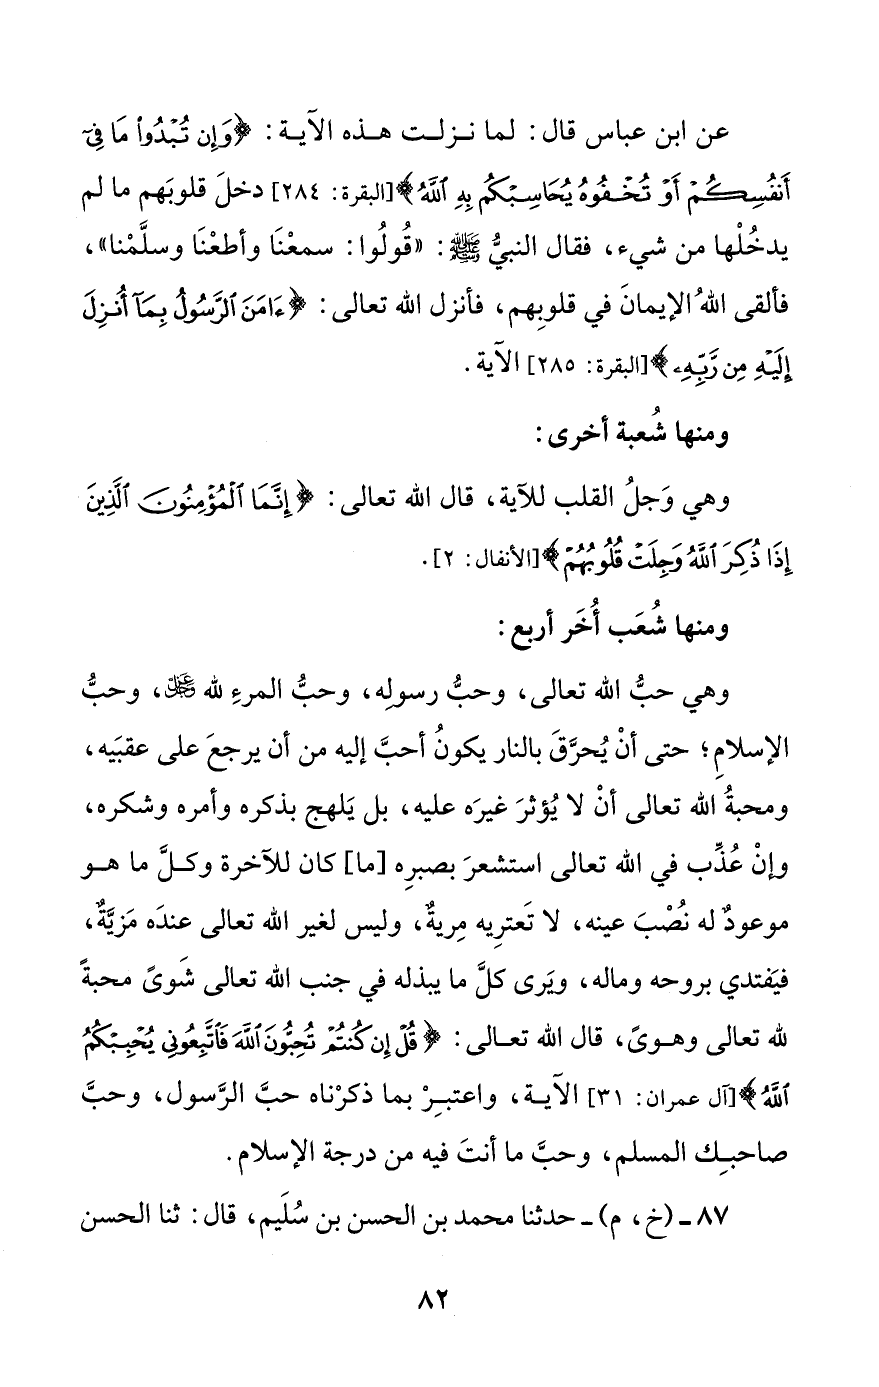 عن ابن عباس قال: لما نزلت هذه الآية: ﴿وَإِن تُبْدُوا۟ مَا فِىٓ
أَنفُسِكُمْ أَوْ تُخْفُوهُ يُحَاسِبْكُم بِهِ ٱللَّهُ﴾[البقرة: ٢٨٤] دخلَ قلوبَهم ما لم
يدخُلْها من شيء، فقال النبيُّ ﷺ: «قُولُوا: سمعْنَا وأطعْنَا وسلَّمْنا»،
فألقى اللهُ الإيمانَ في قلوبِهم، فأنزل الله تعالى: ﴿ءَامَنَ ٱلرَّسُولُ بِمَآ أُنزِلَ
إِلَيْهِ مِن رَّبِّهِۦ﴾[البقرة: ٢٨٥] الآية.
ومنها شُعبة أخرى:
وهي وَجلُ القلب للآية، قال الله تعالى: ﴿إِنَّمَا ٱلْمُؤْمِنُونَ ٱلَّذِينَ
إِذَا ذُكِرَ ٱللَّهُ وَجِلَتْ قُلُوبُهُمْ﴾[الأنفال: ٢].
ومنها شُعَب أُخَر أربع:
وهي حبُّ الله تعالى، وحبُّ رسولِه، وحبُّ المرءِ لله ﷻ، وحبُّ
الإسلامِ؛ حتى أنْ يُحرَّقَ بالنار يكونُ أحبَّ إليه من أن يرجعَ على عقبَيه،
ومحبةُ الله تعالى أنْ لا يُؤثرَ غيرَه عليه، بل يَلهج بذكره وأمره وشكره،
وإنْ عُذِّب في الله تعالى استشعرَ بصبرِه [ما] كان للآخرة وكلَّ ما هو
موعودٌ له نُصْبَ عينه، لا تَعتريه مِريةٌ، وليس لغير الله تعالى عندَه مَزيَّةٌ،
فيَفتدي بروحه وماله، ويَرى كلَّ ما يبذله في جنب الله تعالى شَوىً محبةً
لله تعالى وهوىً، قال الله تعالى: ﴿قُلْ إِن كُنتُمْ تُحِبُّونَ ٱللَّهَ فَٱتَّبِعُونِى يُحْبِبْكُمُ
ٱللَّهُ﴾[آل عمران: ٣١] الآية، واعتبِرْ بما ذكرْناه حبَّ الرَّسول، وحبَّ
صاحبِك المسلم، وحبَّ ما أنتَ فيه من درجة الإسلام.
٨٧ ـ (خ، م) ـ حدثنا محمد بن الحسن بن سُلَيم، قال: ثنا الحسن
٨٢